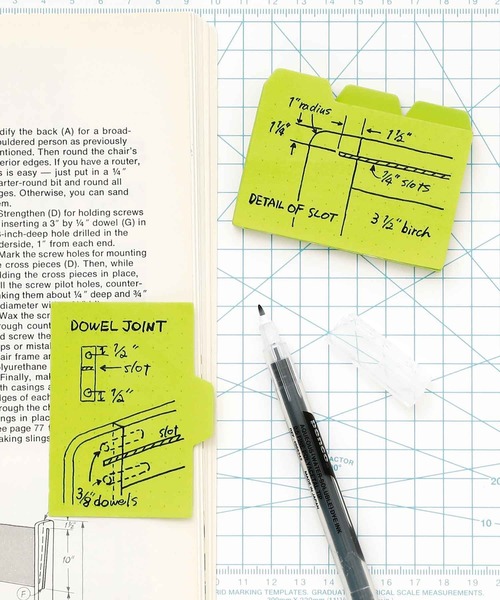 dify the back (A) for a broad-
ouldered person as previously
ntioned. Then round the chair's
erior edges. If you have a router,
s is easy — just put in a ¼"
arter-round bit and round all
ges. Otherwise, you can sand
em.
Strengthen (D) for holding screws
inserting a 3" by ¼" dowel (G) in
-inch-deep hole drilled in the
derside, 1" from each end.
Mark the screw holes for mounting
e cross pieces (D). Then, while
lding the cross pieces in place,
ll the screw pilot holes, counter-
king them about ¼" deep and ¾"
diameter
Wax the sc
rough count
ps or mista
air frame ar
olyurethane
Finally, mak
th casings a
dges of each
rough the ch
ngs in place
ee page 77
aking slings
1½"
10"
F
DOWEL JOINT
½"
slot
½"
slot
3/8" dowels
1" radius
1¼"
1½"
¼" slots
DETAIL OF SLOT
3½" birch
20
10
RID MARKING TEMPLATES. GRADUAT
CAL SCALE MEASUREMENTS.